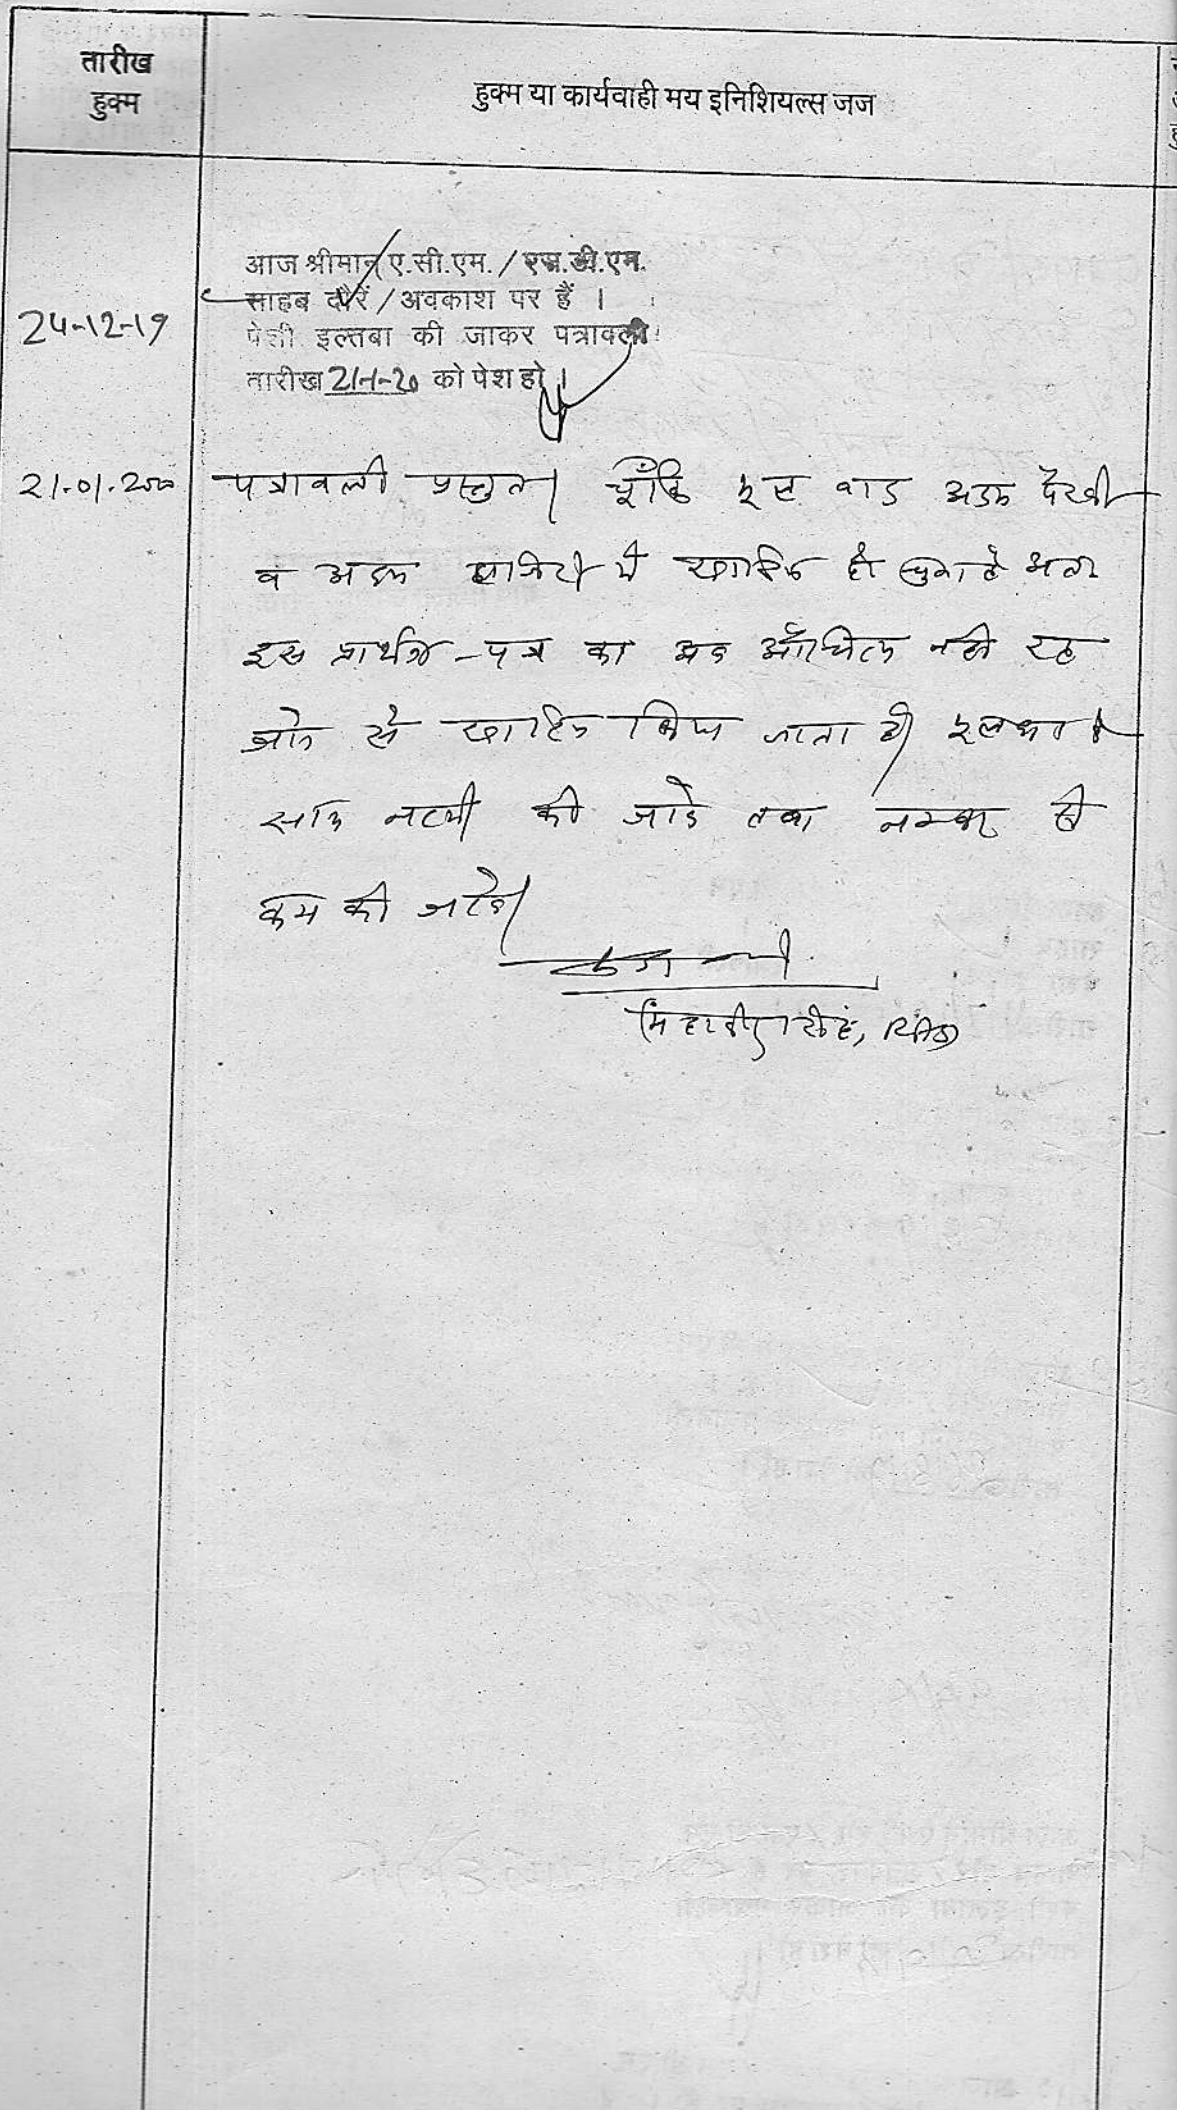 तारीख
हुक्म
हुक्म या कार्यवाही मय इनिशियल्स जज
आज श्रीमान् ए.सी.एम. / एस.डी.एम.
साहब दौरें / अवकाश पर हैं ।
24-12-19
पेशी इल्तबा की जाकर पत्रावली
तारीख 21-1-20 को पेश हो ।
21.01.2020 पत्रावली प्रस्तुत। चूँकि वाद अदम पैरवी
व अदम हाजिरी में खारिज हो चुका है अतः
इस प्रार्थना-पत्र का अब औचित्य नही रह
से खारिज किया जाता है।
की जावे तथा नम्बर से
कम की जावे।